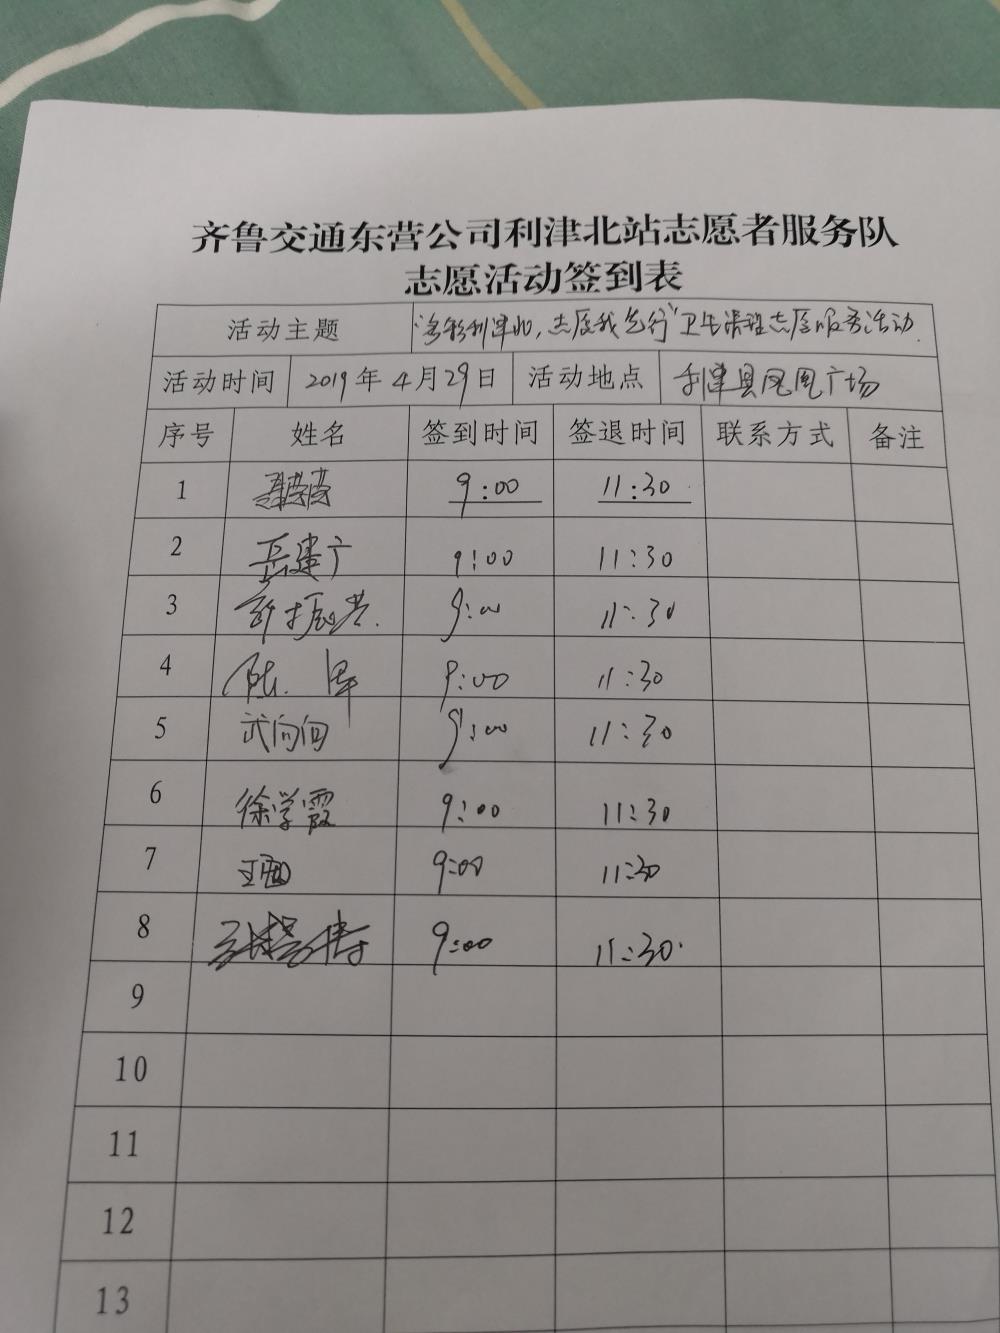 齐鲁交通东营公司利津北站志愿者服务队
志愿活动签到表
活动主题 “多彩利津北，志愿我先行”卫生清理志愿服务活动
活动时间 2019年4月29日 活动地点 利津县凤凰广场
序号 姓名 签到时间 签退时间 联系方式 备注
1 9:00 11:30
2 岳建广 9:00 11:30
3 9:00 11:30
4 9:00 11:30
5 武向向 9:00 11:30
6 徐学霞 9:00 11:30
7 9:00 11:30
8 9:00 11:30
9
10
11
12
13